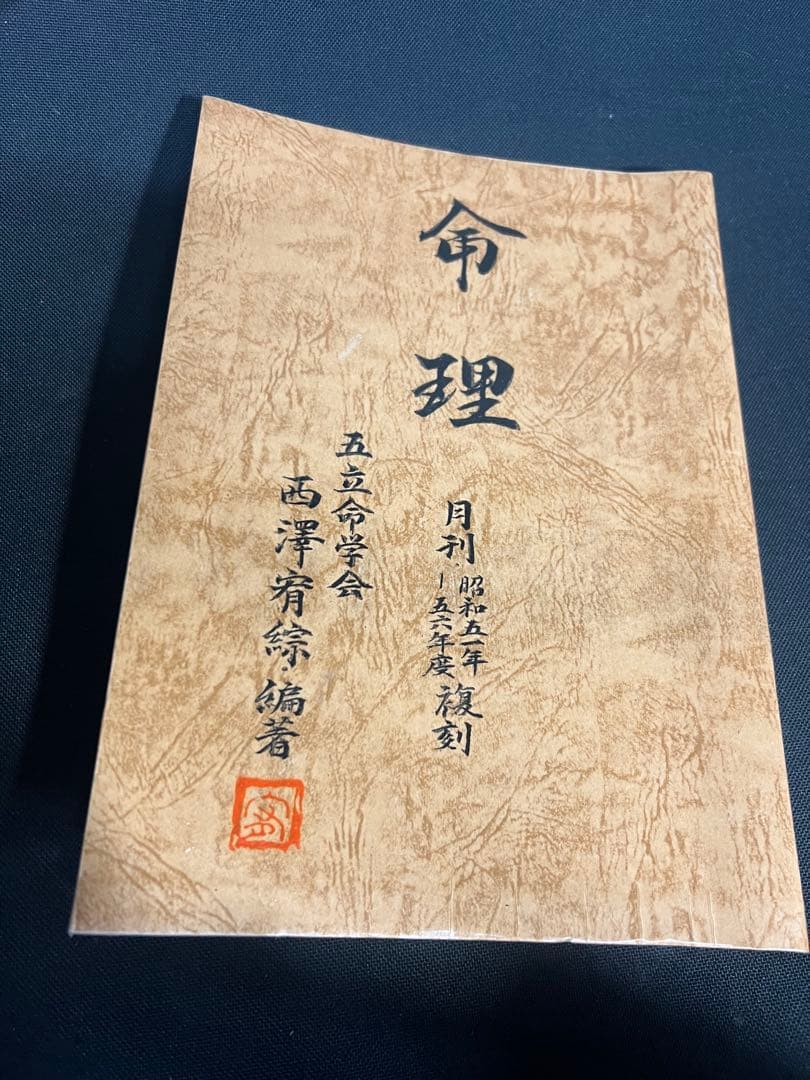 命理
月刊・昭和五一年
―五六年度 複刻
五立命学会
西澤宥綜・編著